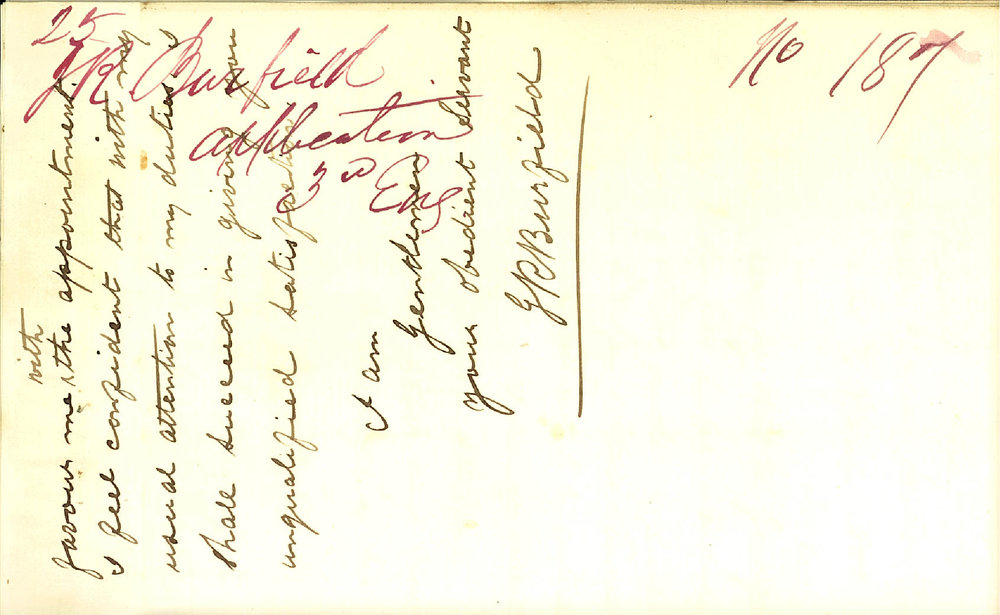 25
G R Burfield
application
3rd Eng
No 187
with
favour me the appointment
I feel confident that with my
usual attention to my duties is
shall succeed in giving you
unqualified satisfaction
I am
Gentlemen
your obedient Servant
G R Burfield